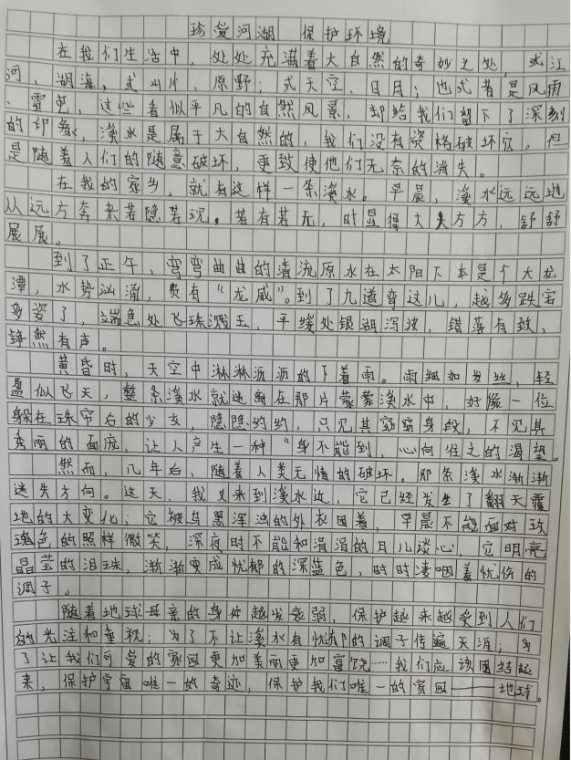 珍爱河湖 保护环境
在我们生活中，处处充满着大自然的奇妙之处，或江
河、湖海，或山片、原野；或天空、日月；也或者是风雨
、雪虫，这些看似平凡的自然风景，却给我们留下了深刻
的印象，溪水是属于大自然的，我们没有资格破坏它。但
是随着人们的随意破坏，更致使他们无奈的消失。
在我的家乡，就有这样一条溪水。早晨，溪水远远地
从远方奔来若隐若沉。若有若无，时显得大大方方，舒舒
展展。
到了正午，弯弯曲曲的清流原水在太阳下本是个大龙
潭，水势汹涌，贵有“龙威”。到了九道弯这儿，越多跌宕
多姿了，湍急处飞珠溅玉，平缓处银湖泻波，错落有致、
铮然有声。
黄昏时，天空中淋淋沥沥的下着雨。雨细如发丝，轻
盈似飞天，整条溪水就迷离在那片蒙蒙溪水中，好像一位
躲在珠帘右的少女，隐隐约约，只见其窈窕身段，不见其
秀丽的面庞，让人产生一种“身不能到，心向往之的渴望。
然而，几年后，随着人类无情的破坏。那条溪水渐渐
迷失方向。这天，我又来到溪水边，它已经发生了翻天覆
地的大变化；它被乌黑浑浊的外衣围着，早晨不能面对玫
瑰色的照样微笑，深夜时不能和涓涓的月儿谈心，它明亮
晶莹的泪珠，渐渐变成忧郁的深蓝色，时时凄咽着忧伤的
调子。
随着地球母亲的身体越发衰弱，保护越来越受到人们
的关注和重视；为了不让溪水有忧郁的调子传遍天涯；为
了让我们可爱的家园更加美丽更加富饶……我们应该团结起
来，保护宇宙唯一的奇迹，保护我们唯一的家园——地球。